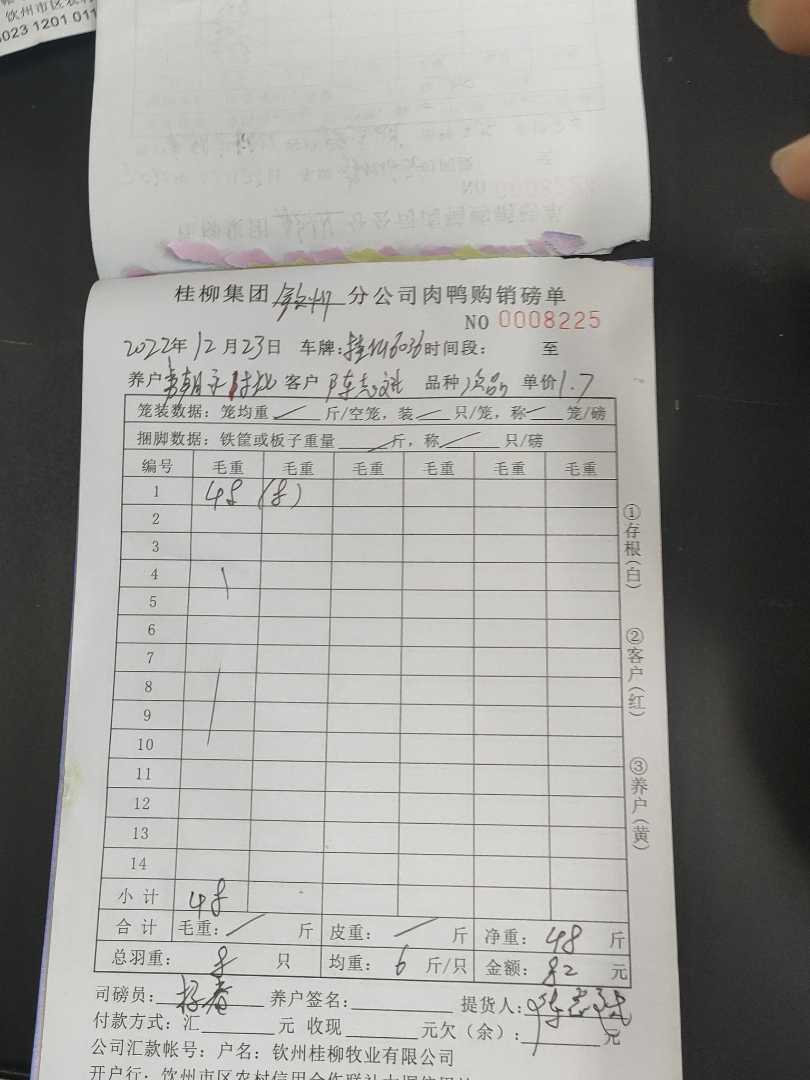 钦州市区农村
6023 1201 011
桂柳集团 钦州 分公司肉鸭购销磅单
NO 0008225
2022年 12月 23日 车牌: 时间段: 至
养户 客户 陈志斌 品种 次品 单价 1.7
笼装数据: 笼均重 斤/空笼, 装 只/笼, 称 笼/磅
捆脚数据: 铁筐或板子重量 斤, 称 只/磅
编号 毛重 毛重 毛重 毛重 毛重 毛重
1 48 (8)
2
3
4
5
6
7
8
9
10
11
12
13
14
小计 48
合计 毛重: 斤 皮重: 斤 净重: 48 斤
总羽重: 8 只 均重: 6 斤/只 金额: 82 元
司磅员: 杨春 养户签名: 提货人: 陈志斌
付款方式: 汇 元 收现 元欠(余): 元
公司汇款帐号: 户名: 钦州桂柳牧业有限公司
开户行: 钦州市区农村信用合作联社
①存根(白)
②客户(红)
③养户(黄)